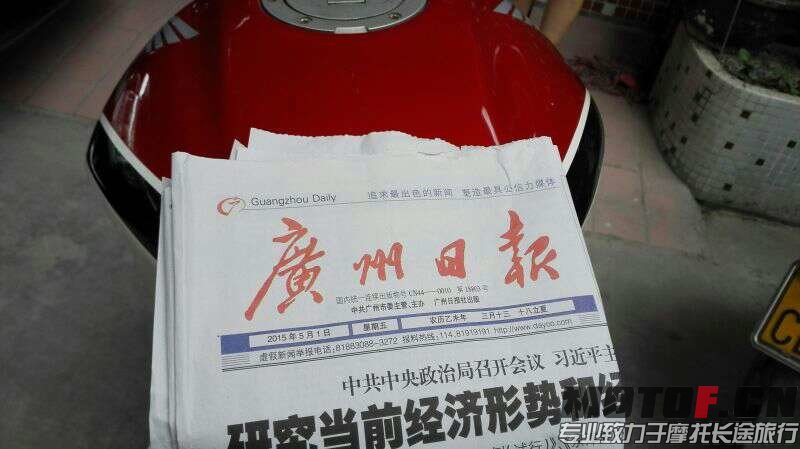 Guangzhou Daily
追求最出色的新闻 塑造最具公信力媒体
廣州日報
国内统一连续出版物号 CN44—0010 第
中共广州市委主管、主办 广州日报社出版
2015年5月1日 星期五 农历乙未年 三月十三 十八立夏
虚假新闻举报电话:81883088-3272 报料热线:114,81919191 http://www.dayoo.com
中共中央政治局召开会议 习近平主
研究当前经济形势和经
MOTOF.CN
专业致力于摩托长途旅行